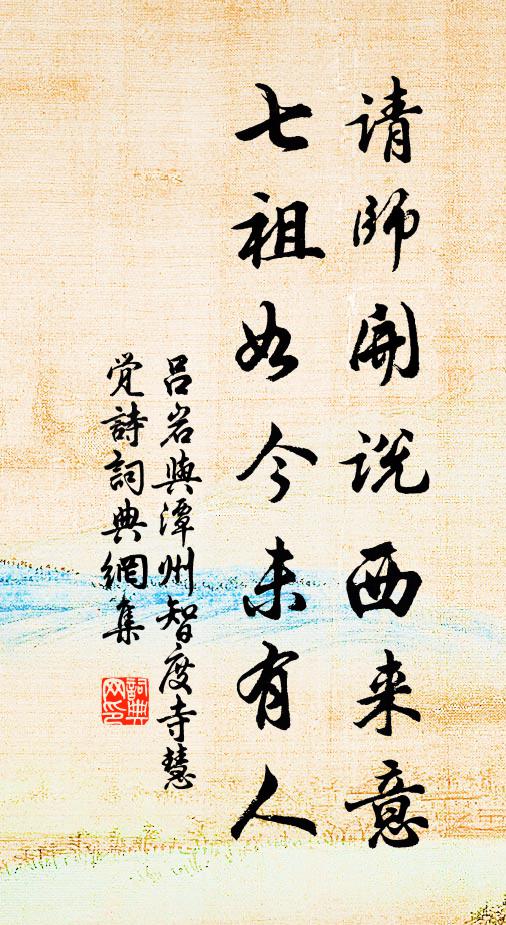 请師開说西来意
七祖如今未有人
吕岩與潭州智度寺慧
觉詩詞典網集
詞典
网印